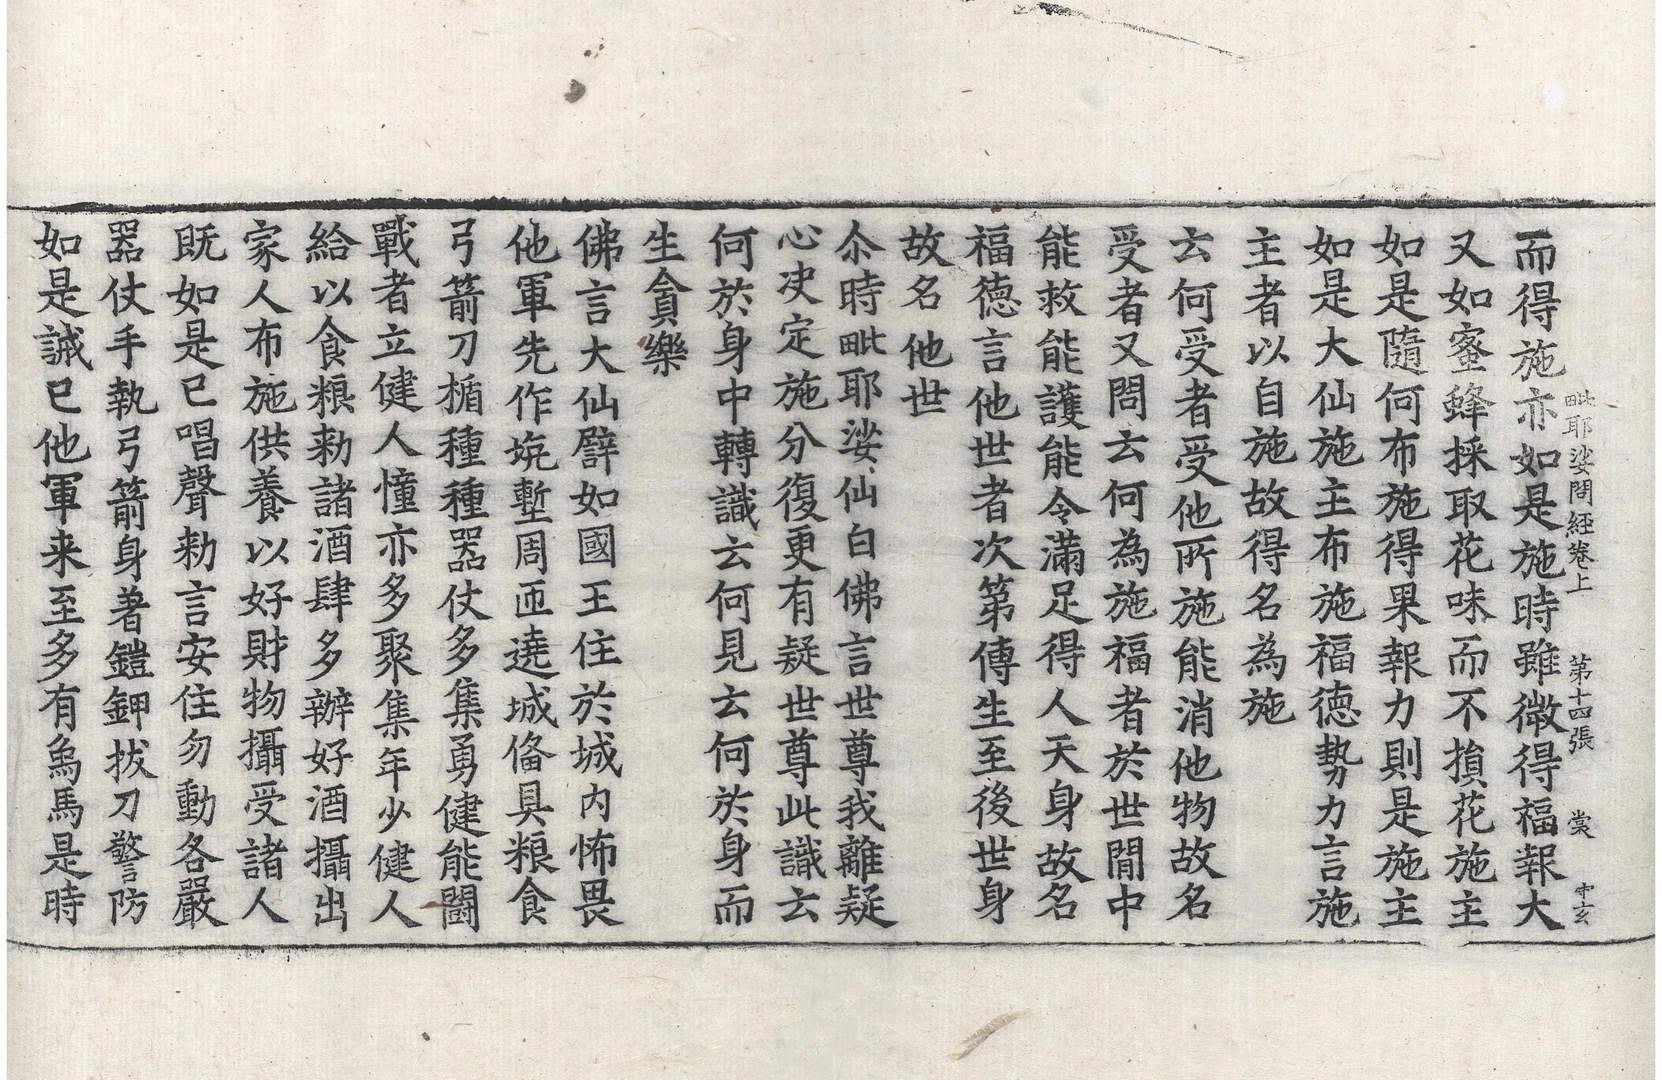 毗耶娑問經卷上　第十四張　裳　中玄
而得施亦如是施時雖微得福報大
又如蜜蜂採取花味而不損花施主
如是隨何布施得果報力則是施主
如是大仙施主布施福德勢力言施
主者以自施故得名為施
云何受者受他所施能消他物故名
受者又問云何為施福者於世間中
能救能護能令滿足得人天身故名
福德言他世者次第傳生至後世身
故名他世
尒時毗耶娑仙白佛言世尊我離疑
心决定施分復更有疑世尊此識云
何於身中轉識云何見云何於身而
生貪樂
佛言大仙譬如國王住於城內怖畏
他軍先作坑塹周迊遶城俻具粮食
弓箭刀楯種種器仗多集勇健能鬪
戰者立健人憧亦多聚集年少健人
給以食粮勑諸酒肆多辦好酒攝出
家人布施供養以好財物攝受諸人
既如是已唱聲勑言安住勿動各嚴
器仗手執弓箭身著鎧鉀拔刀警防
如是誡已他軍来至多有象馬是時